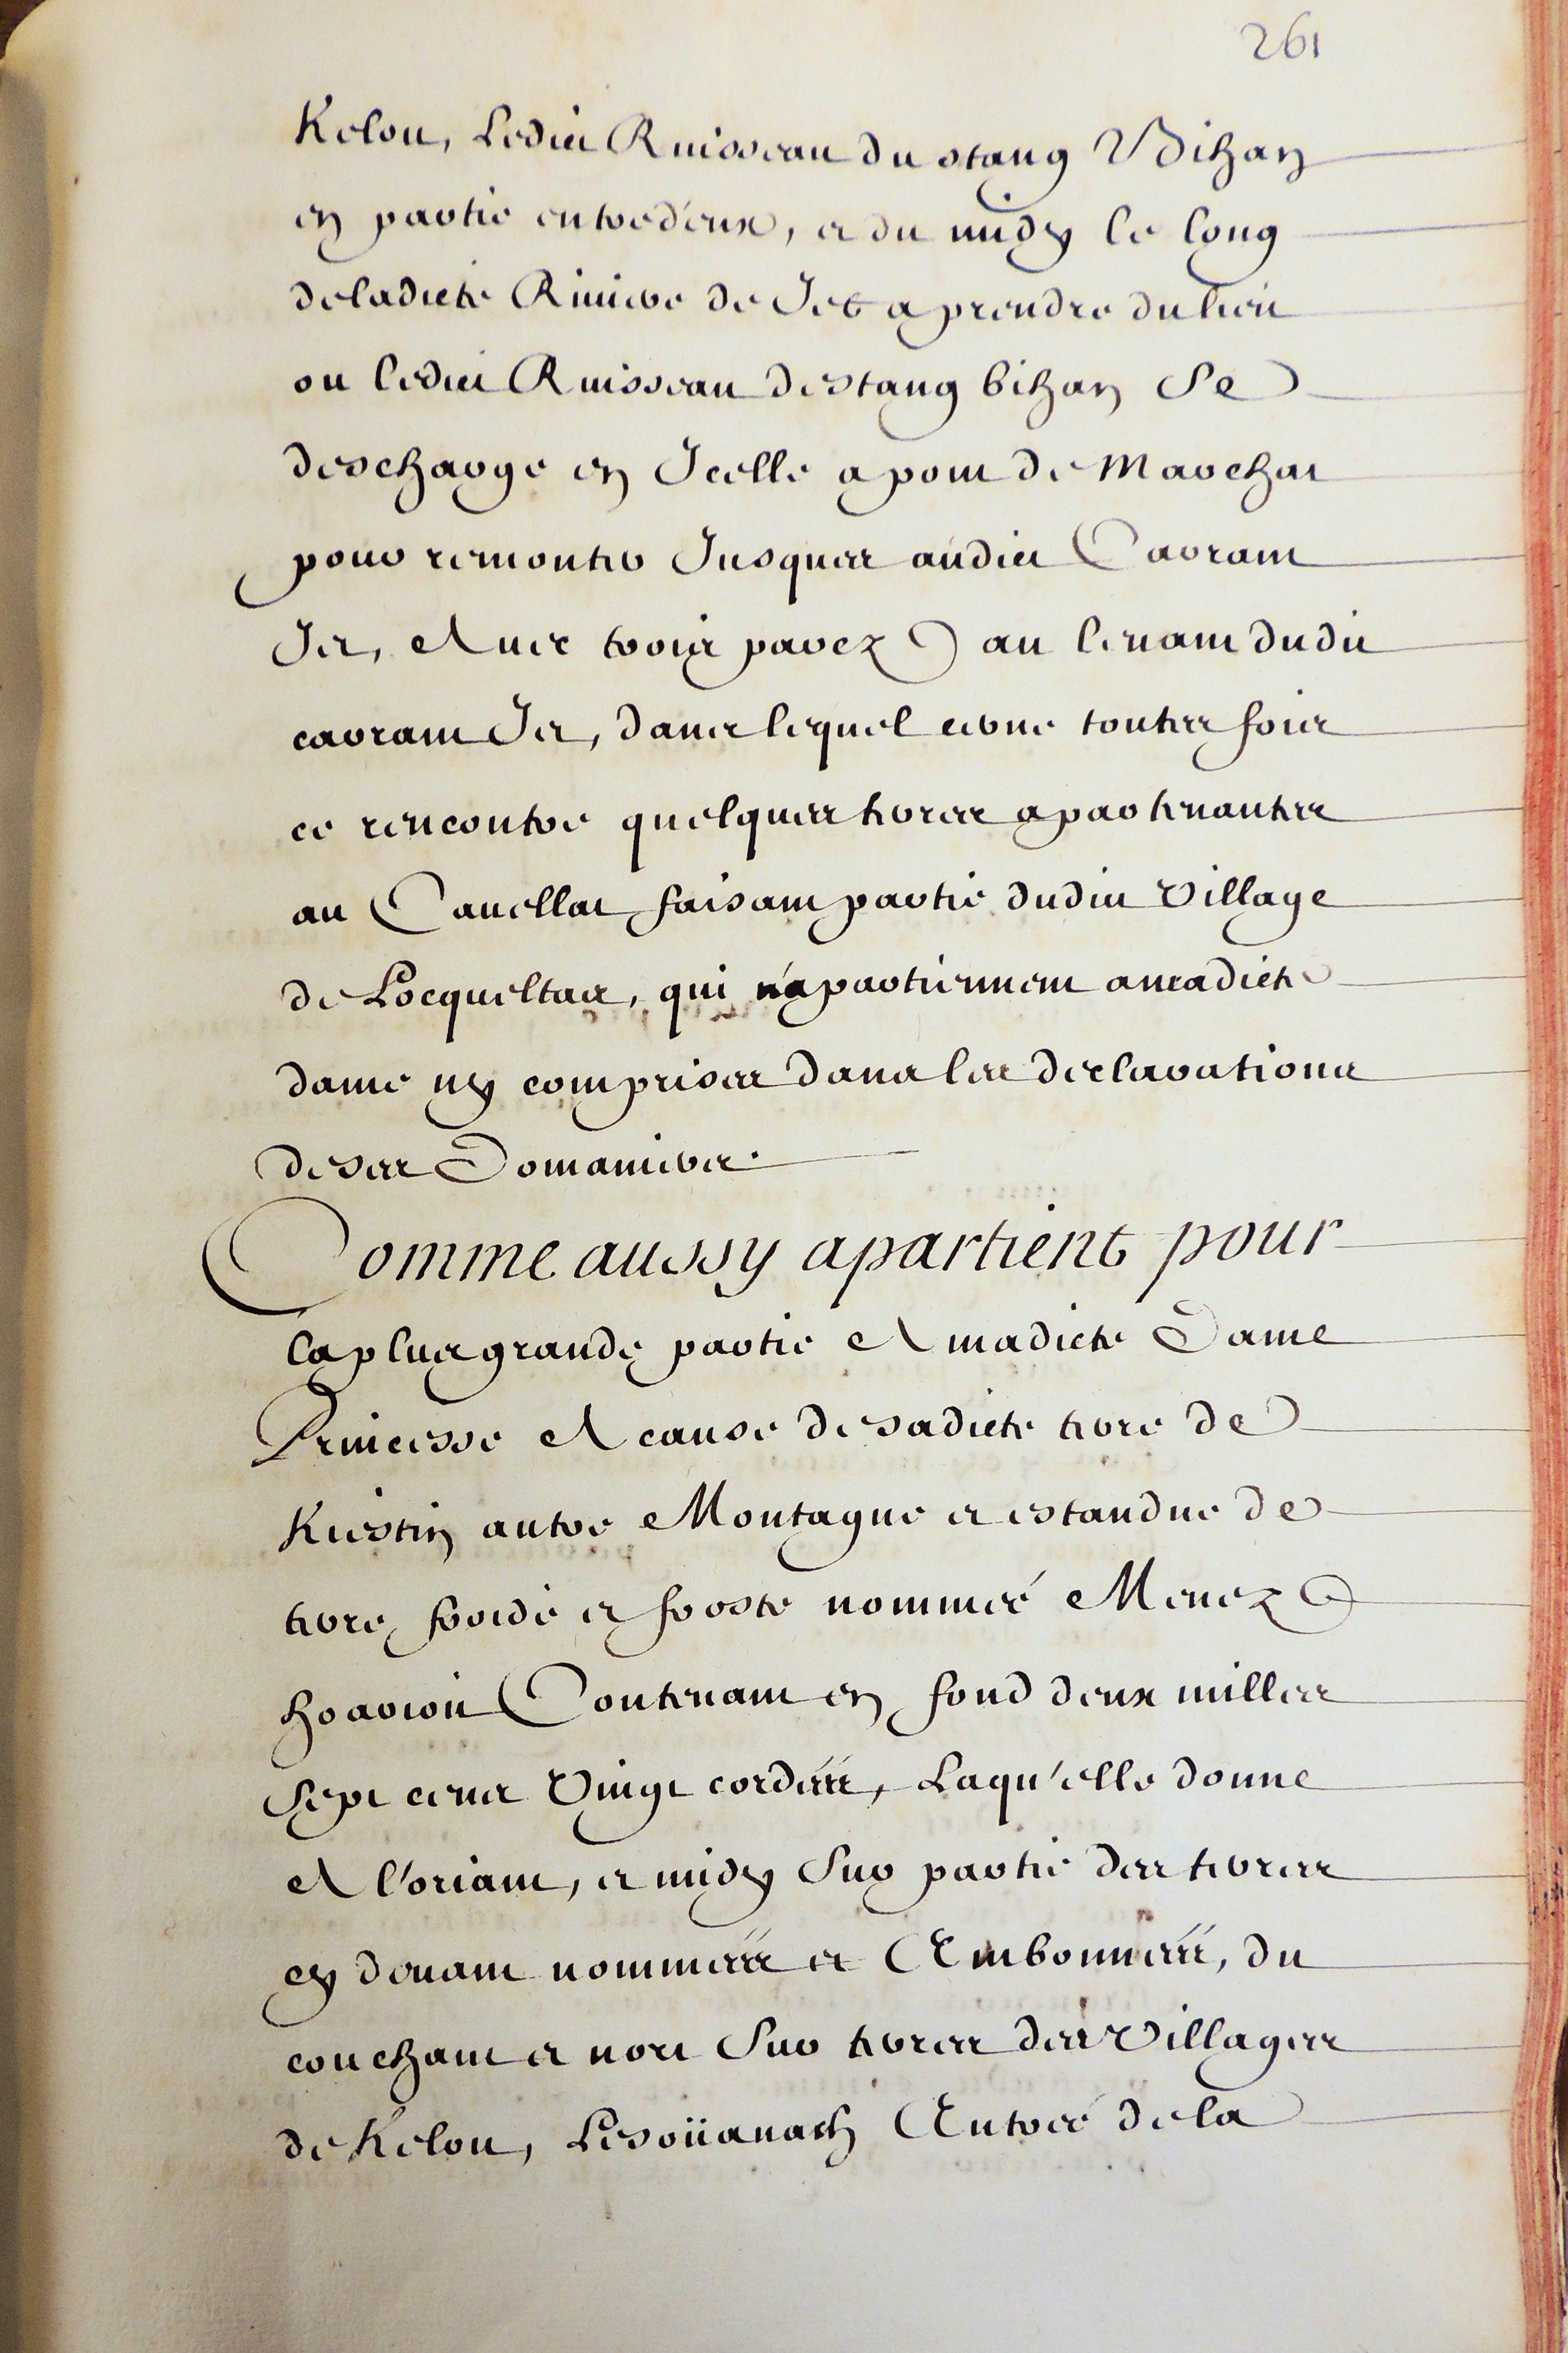 261
Kelou, Ledict Ruisseau du stang Vihan
en partie entre d'eux, et du midy le long
deladicte Riuiere de Jet a prendre du lieu
ou ledict Ruisseau de stang bihan Se
descharge en Jcelle a pont de Marchat
pour remonter Jusques audict Carrant
Jet, Auec trois parez au leuant dudit
carrant Jet, dans lequel cerne touttes fois
ce rencontre quelques terres apartenantes
au Cauellat faisant partie dudit Village
de Locqueltas, qui n'apartiennent amadicte
dame ny comprises dans les declarations
deses Domaniers.
Comme aussy apartient pour
la plus grande partie A madicte Dame
Princesse A cause de sadicte terre de
Kiestin autre Montagne et estandue de
terre froide et froste nommée Menez
hoarioù Contenant en fond deux milles
Sept cents Vingt cordées, Laqu'elle donne
A l'oriant, et midy Sur partie des terres
cy deuant nommées et Embonnéés, du
couchant et nort Sur terres des Villages
de Kelou, Lesoüanach Entrée de la